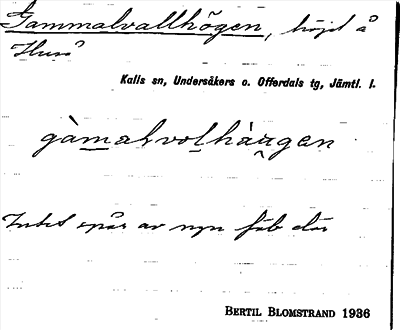 Gammalvallhögen, höjd å
Huså
Kalls sn, Undersåkers o. Offerdals tg, Jämtl. l.
gàmalvolhàu̯gen
Intet spår av nyn fäb där
BERTIL BLOMSTRAND 1936